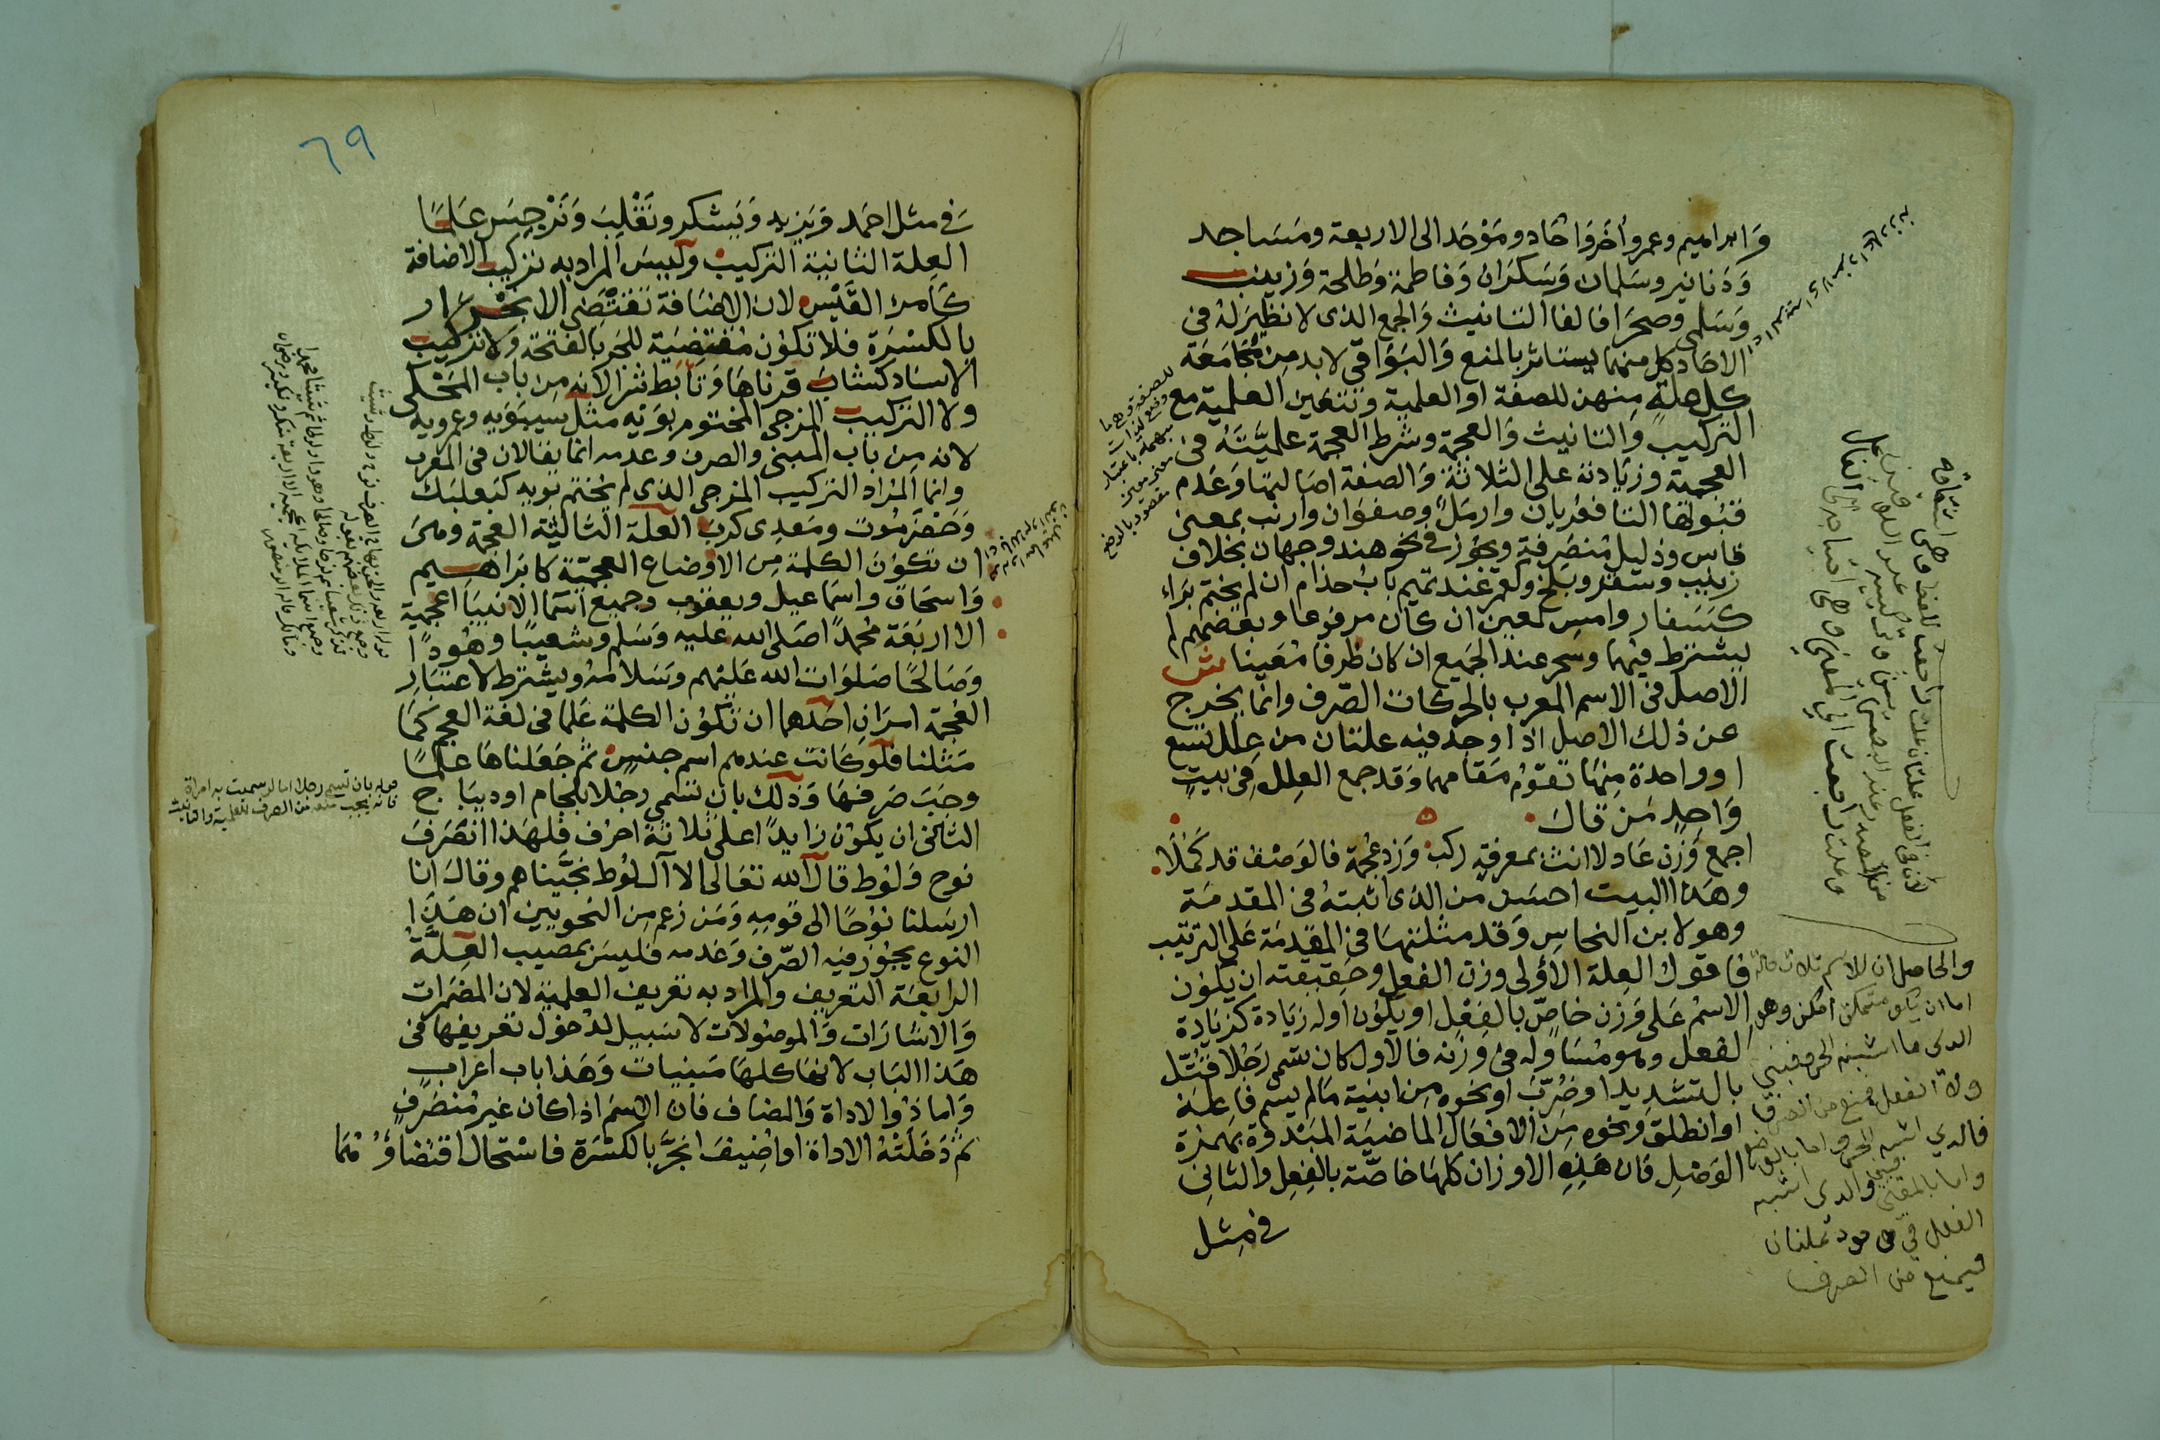 وابراهيم وعمر وأخر واحاد وموحد الى الاربعة ومساجد
ودنانير وسلمان وسكران وفاطمة وطلحة وزينب
وسلمى وصحرا فالفا التانيث والجمع الذى لا نظير له فى
الاحاد كل منهما يستاثر بالمنع والبواقى لا بد من مجامعة
كل علة منهن للصفة او العلمية وتتعين العلمية مع
التركيب والتانيث والعجمة وشرط العجمة علميته فى
العجمية وزيادته على الثلاثة والصفة اصالتها وعدم
قبولها التا فعريان وارمل وصفوان وارنب بمعنى
قاس وذليل منصرفة ويجوز فى نحو هند وجهان بخلاف
زينب وسقر وبلخ ولعمر عند تميم باب حذام ان لم يختم براء
كسفار وامس لمعين ان كان مرفوعا وبعضهم لم
يشترط فيهما وسحر عند الجميع ان كان ظرفا معينا ش
الاصل فى الاسم المعرب بالحركات الصرف وانما يخرج
عن ذلك الاصل اذا وجد فيه علتان من علل تسع
او واحدة منها تقوم مقامهما وقد جمع العلل فى بيت
واحد من قال
اجمع وزن عادلا انث بمعرفة ركب وزد عجمة فالوصف قد كملا
وهذا البيت احسن من الذى اثبته فى المقدمة
وهو لابن النحاس وقد مثلتها فى المقدمة على الترتيب
فاقول العلة الاولى وزن الفعل وحقيقته ان يكون
الاسم على وزن خاص بالفعل او يكون اوله زيادة كزيادة
الفعل وهو مساو له فى وزنه فالاول كان تسمى رجلا قتل
بالتشديد او ضرب او نحوه من ابنية ما لم يسم فاعله
او انطلق ونحوه من الافعال الماضية المبدوة بهمزة
الوصل فان هذه الاوزان كلها خاصة بالفعل والثانى
فى مثل
للصفة وهى ما
وضع لذات
مبهمة باعتبار
معنى معين
مقصود بالوضع
والحاصل ان للاسم ثلاث حالة
اما ان يكون متمكن امكن وهو
الذى ما اشبه الحرف فيبنى
ولا الفعل فيمنع من الصرف
فالذي اشبه الحرف اما بالوضع
واما بالمعنى فيبنى والذى اشبه
الفعل
فيمنع من الصرف
٦٩
فى مثل احمد ويزيد ويشكر وتغلب ونرجس علما
العلة الثانية التركيب وليس المراد به تركيب الاضافة
كامرئ القيس لان الاضافة تقتضى الانجرار
بالكسرة فلا تكون مقتضية للجر بالفتحة ولا تركيب
الاسناد كشاب قرناها وتابط شرا لانه من باب المحكى
ولا التركيب المزجى المختوم بويه مثل سيبويه وعمرويه
لانه من باب المبنى والصرف وعدمه انما يقالان فى المعرب
وانما المراد التركيب المزجى الذى لم يختم بويه كبعلبك
وحضرموت ومعدى كرب العلة الثالثة العجمة وهى
ان تكون الكلمة من الاوضاع العجمية كابراهيم
واسحاق واسماعيل ويعقوب وجميع اسما الانبيا اعجمية
الا اربعة محمدا صلى الله عليه وسلم وشعيبا وهودا
وصالحا صلوات الله عليهم وسلامه ويشترط لاعتبار
العجمة امران احدهما ان تكون الكلمة علما فى لغة العجم كما
مثلنا فلو كانت عندهم اسم جنس ثم جعلناها علما
وجب صرفها وذلك بان تسمى رجلا بلجام او ديباج
الثانى ان يكون زايدا على ثلاثة احرف فلهذا انصرف
نوح ولوط قال الله تعالى الا آل لوط نجيناهم وقال انا
ارسلنا نوحا الى قومه ومن زعم من النحويين ان هذا
النوع يجوز فيه الصرف وعدمه فليس بمصيب العلة
الرابعة التعريف والمراد به تعريف العلمية لان المضمرات
والاشارات والموصولات لا سبيل لدخول تعريفها فى
هذا الباب لانها كلها مبنيات وهذا باب اعراب
واما ذو الاداة والمضاف فان الاسم اذا كان غير منصرف
ثم دخلته الاداة او اضيف انجر بالكسرة فاستحال اقتضاؤهما
قوله بان تسمى رجلا اما لو سميت به امراة
فانه يجب منعه من الصرف للعلمية والتانيث